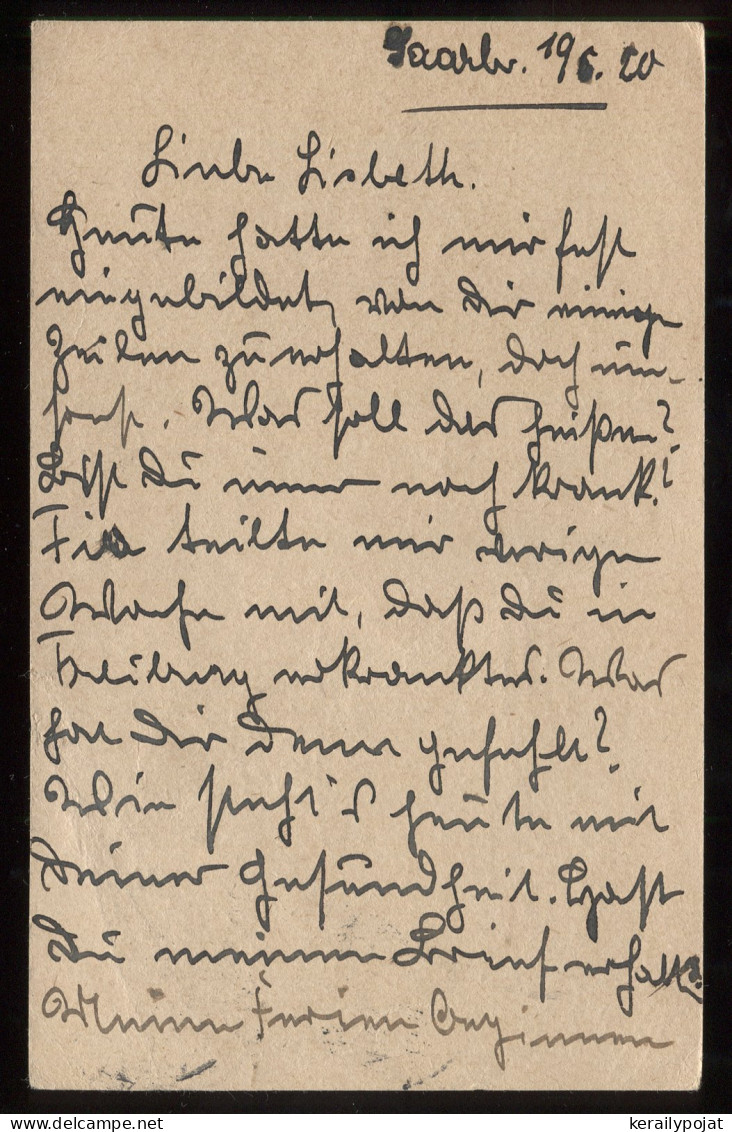 Saarbr. 19.6.20
Liebe Lisbeth.
Heute hatte ich mir fest
eingebildet, von Dir einige
Zeilen zu erhalten, doch um-
sonst. Was soll das heißen?
Bist Du immer noch krank?
teilte mir vorige
Woche mit, daß Du in
Freiburg erkranktes. Was
hat Dir denn gefehlt?
Wie steht's heute mit
Deiner Gesundheit. Hast
Du meinen Brief erhalt?
Meine Ferien beginnen
© kerailypojat